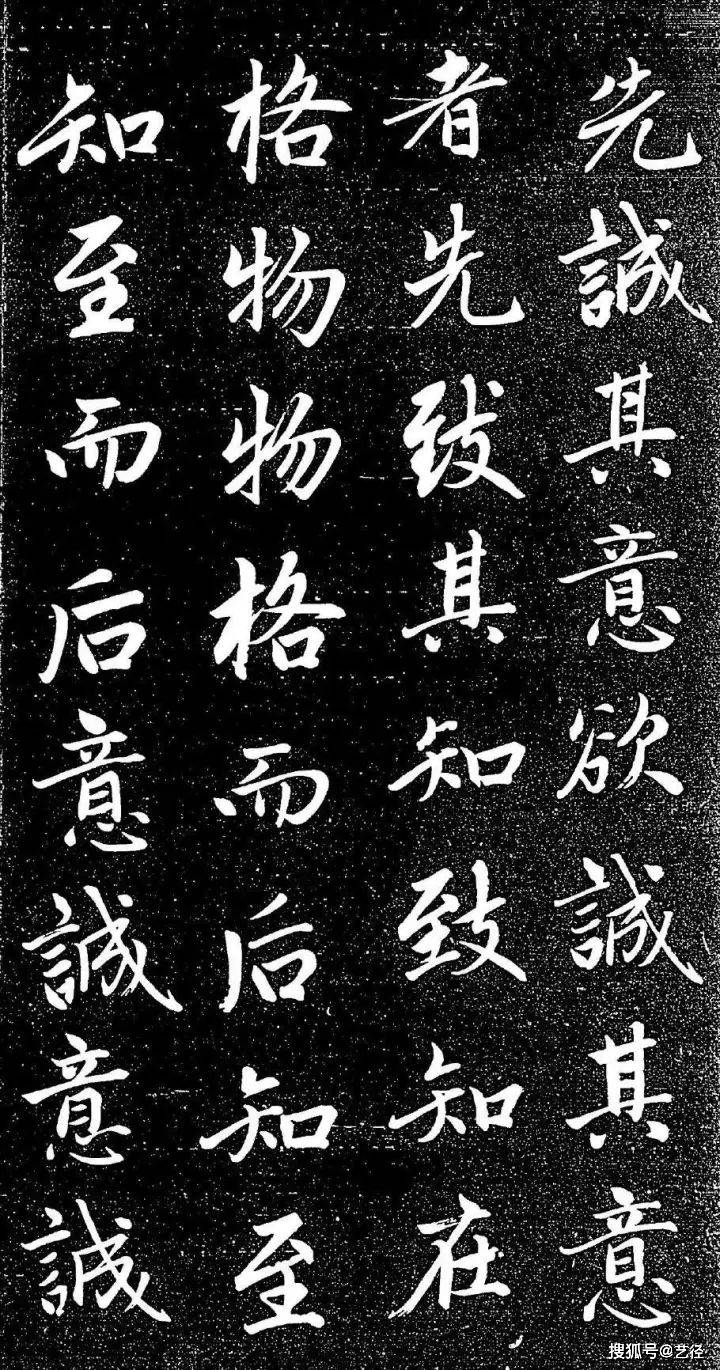 先誠其意欲誠其意
者先致其知致知在
格物物格而后知至
知至而后意誠意誠
搜狐号@艺径